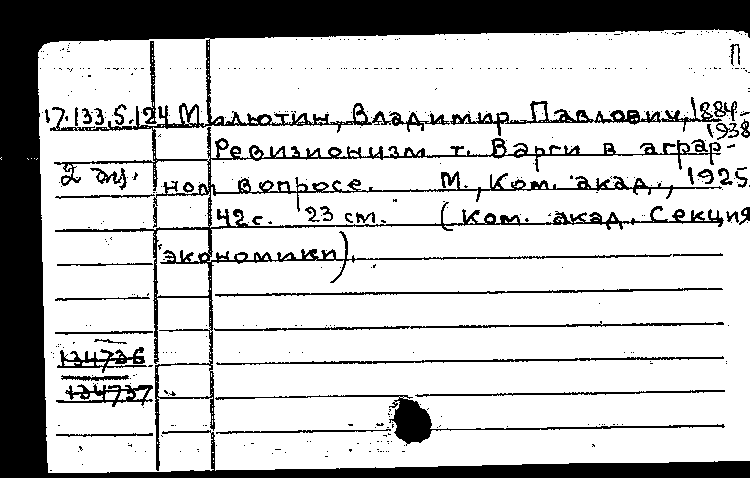 П
17.133.5.124 Милютин, Владимир Павлович, 1884-
1938
Ревизионизм т. Варги в аграр-
2 экз. ном вопросе. М., Ком. акад., 1925
42 с. 23 см. (Ком. акад. Секция
экономики).
134736
134737